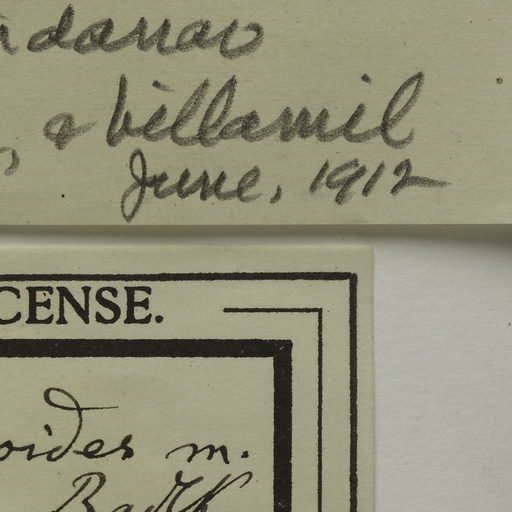 ndanao
, & Villamil
June, 1912
CENSE.
oides m.